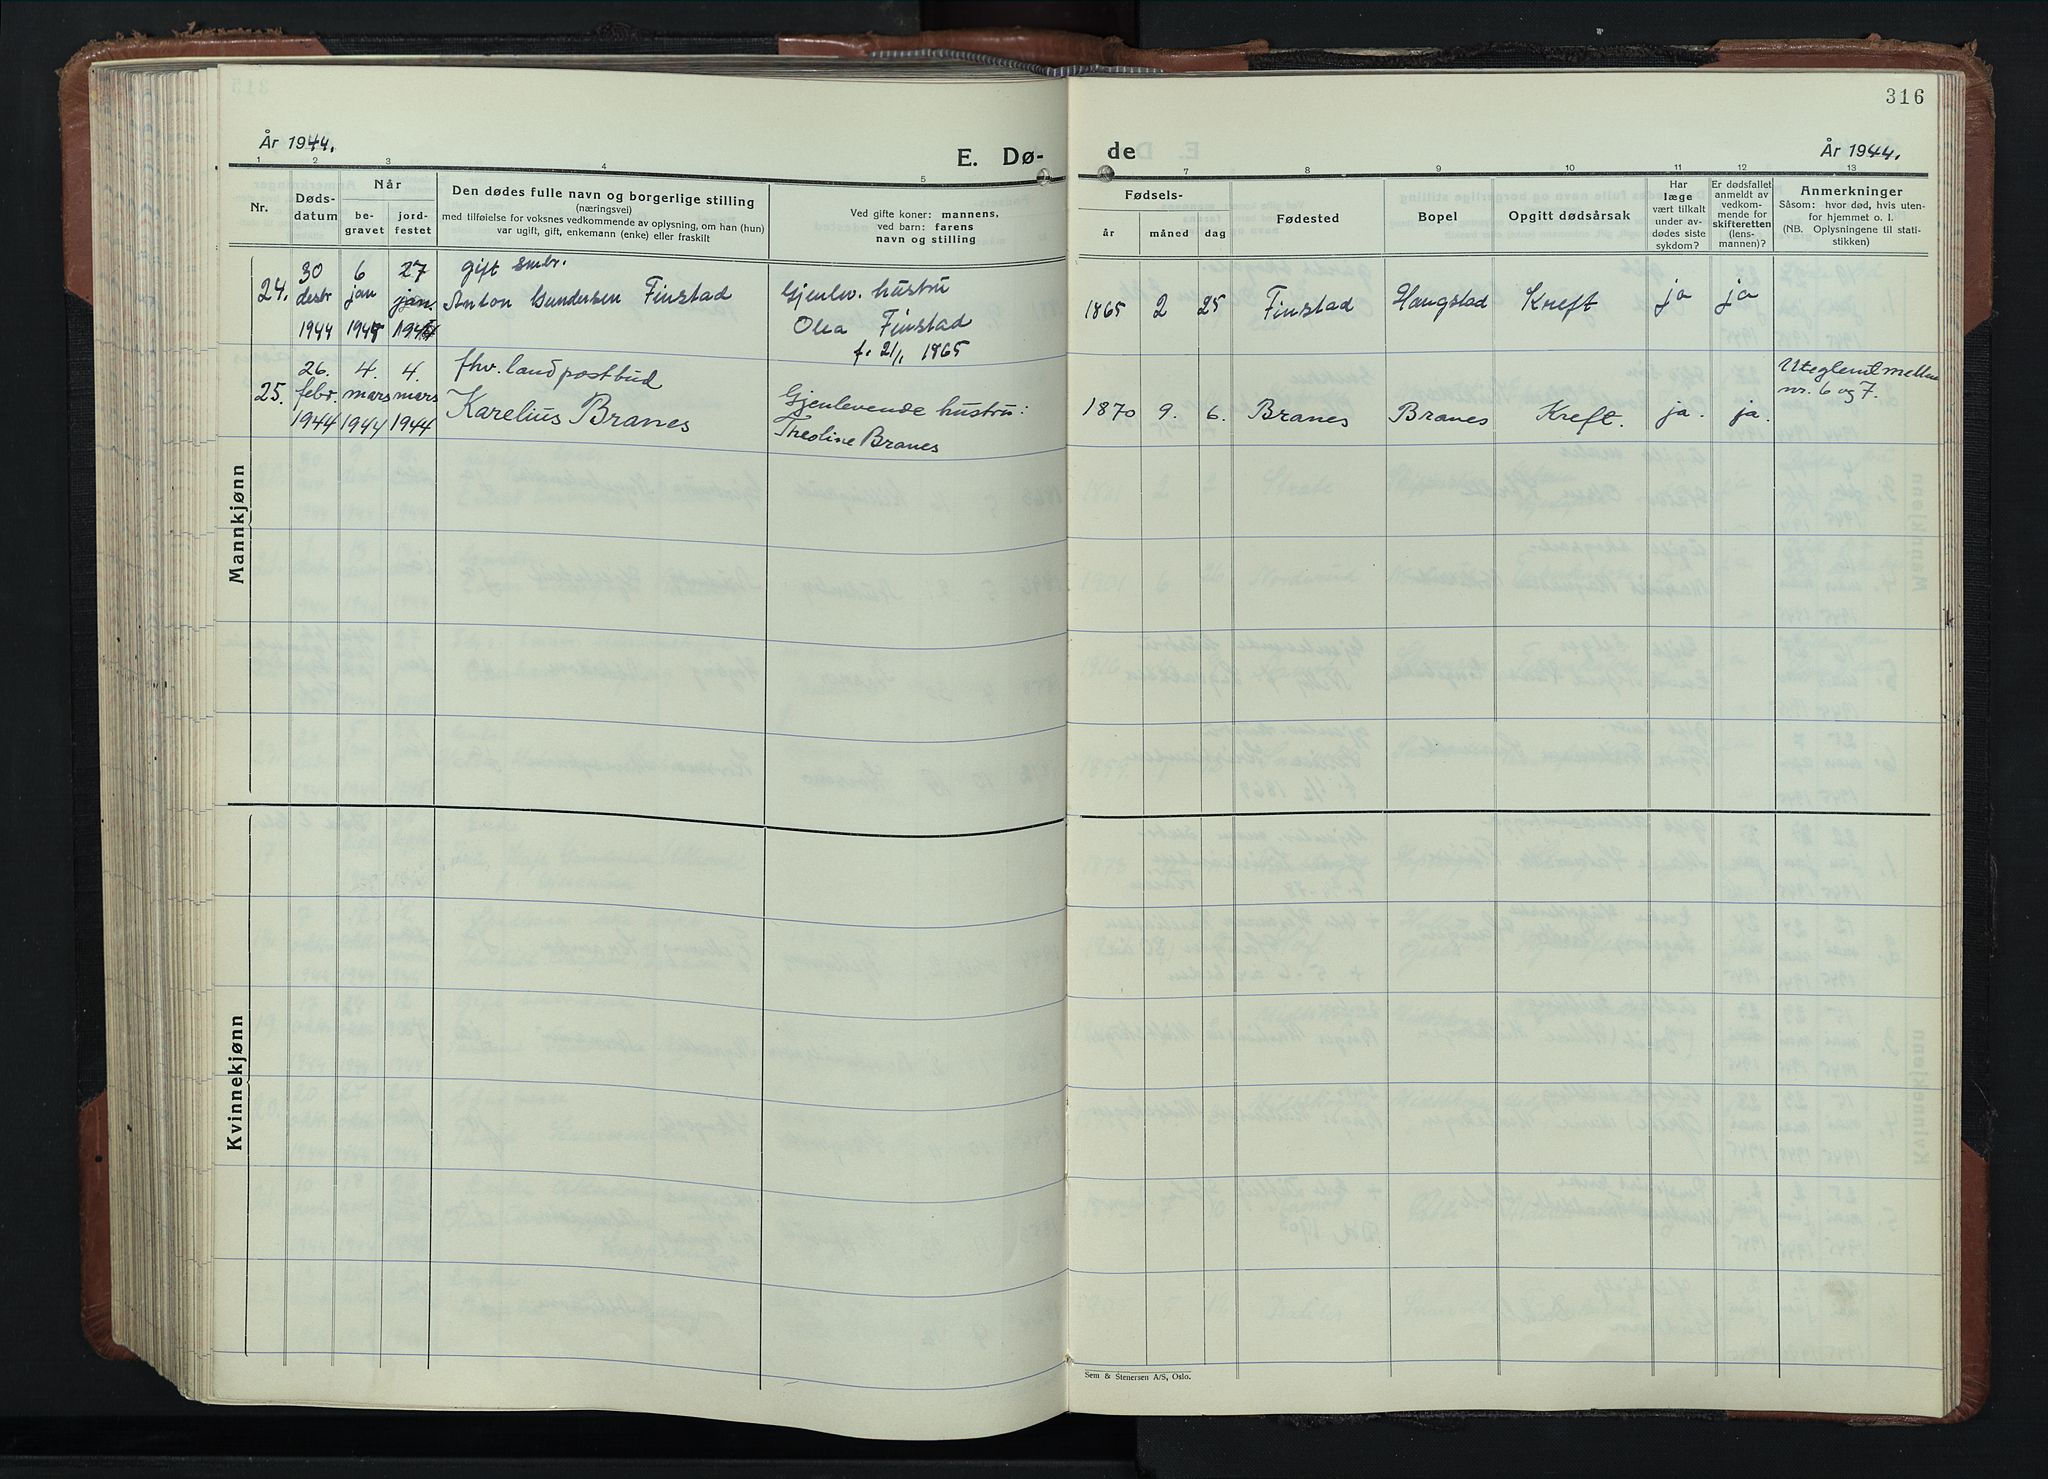 316
År 1944.
E. Dø-
de
År 1944.
1 2 3 4 5 7 8 9 10 11 12 13
Nr.
Døds-
datum
Når
be-
gravet
jord-
festet
Den dødes fulle navn og borgerlige stilling
(næringsvei)
med tilføielse for voksnes vedkommende av oplysning, om han (hun)
var ugift, gift, enkemann (enke) eller fraskilt
Ved gifte koner: mannens,
ved barn: farens
navn og stilling
Fødsels-
år måned dag
Fødested
Bopel
Opgitt dødsårsak
Har
læge
vært tilkalt
under av-
dødes siste
sykdom?
Er dødsfallet
anmeldt av
vedkom-
mende for
skifteretten
(lens-
mannen)?
Anmerkninger
Såsom: hvor død, hvis uten-
for hjemmet o. l.
(NB. Oplysningene til stati-
stikken)
Mannkjønn
24.
30
desbr
1944
6
jan
1945
27
jan.
gift smbr.
Anton Gundersen Finstad
Gjenlev. hustru
Olea Finstad
f. 21/1 1865
1865 2 25 Finstad Haugstad Kreft ja ja
25.
26.
febr.
1944
4.
mars
1944
4.
mars
1944
fhv. landpostbud
Karelius Branes
Gjenlevende hustru:
Theoline Branes
1870 9. 6. Branes Branes Kreft. ja. ja.
Uteglemt mellem
nr. 6 og 7.
Kvinnekjønn
Sem & Stenersen A/S, Oslo.